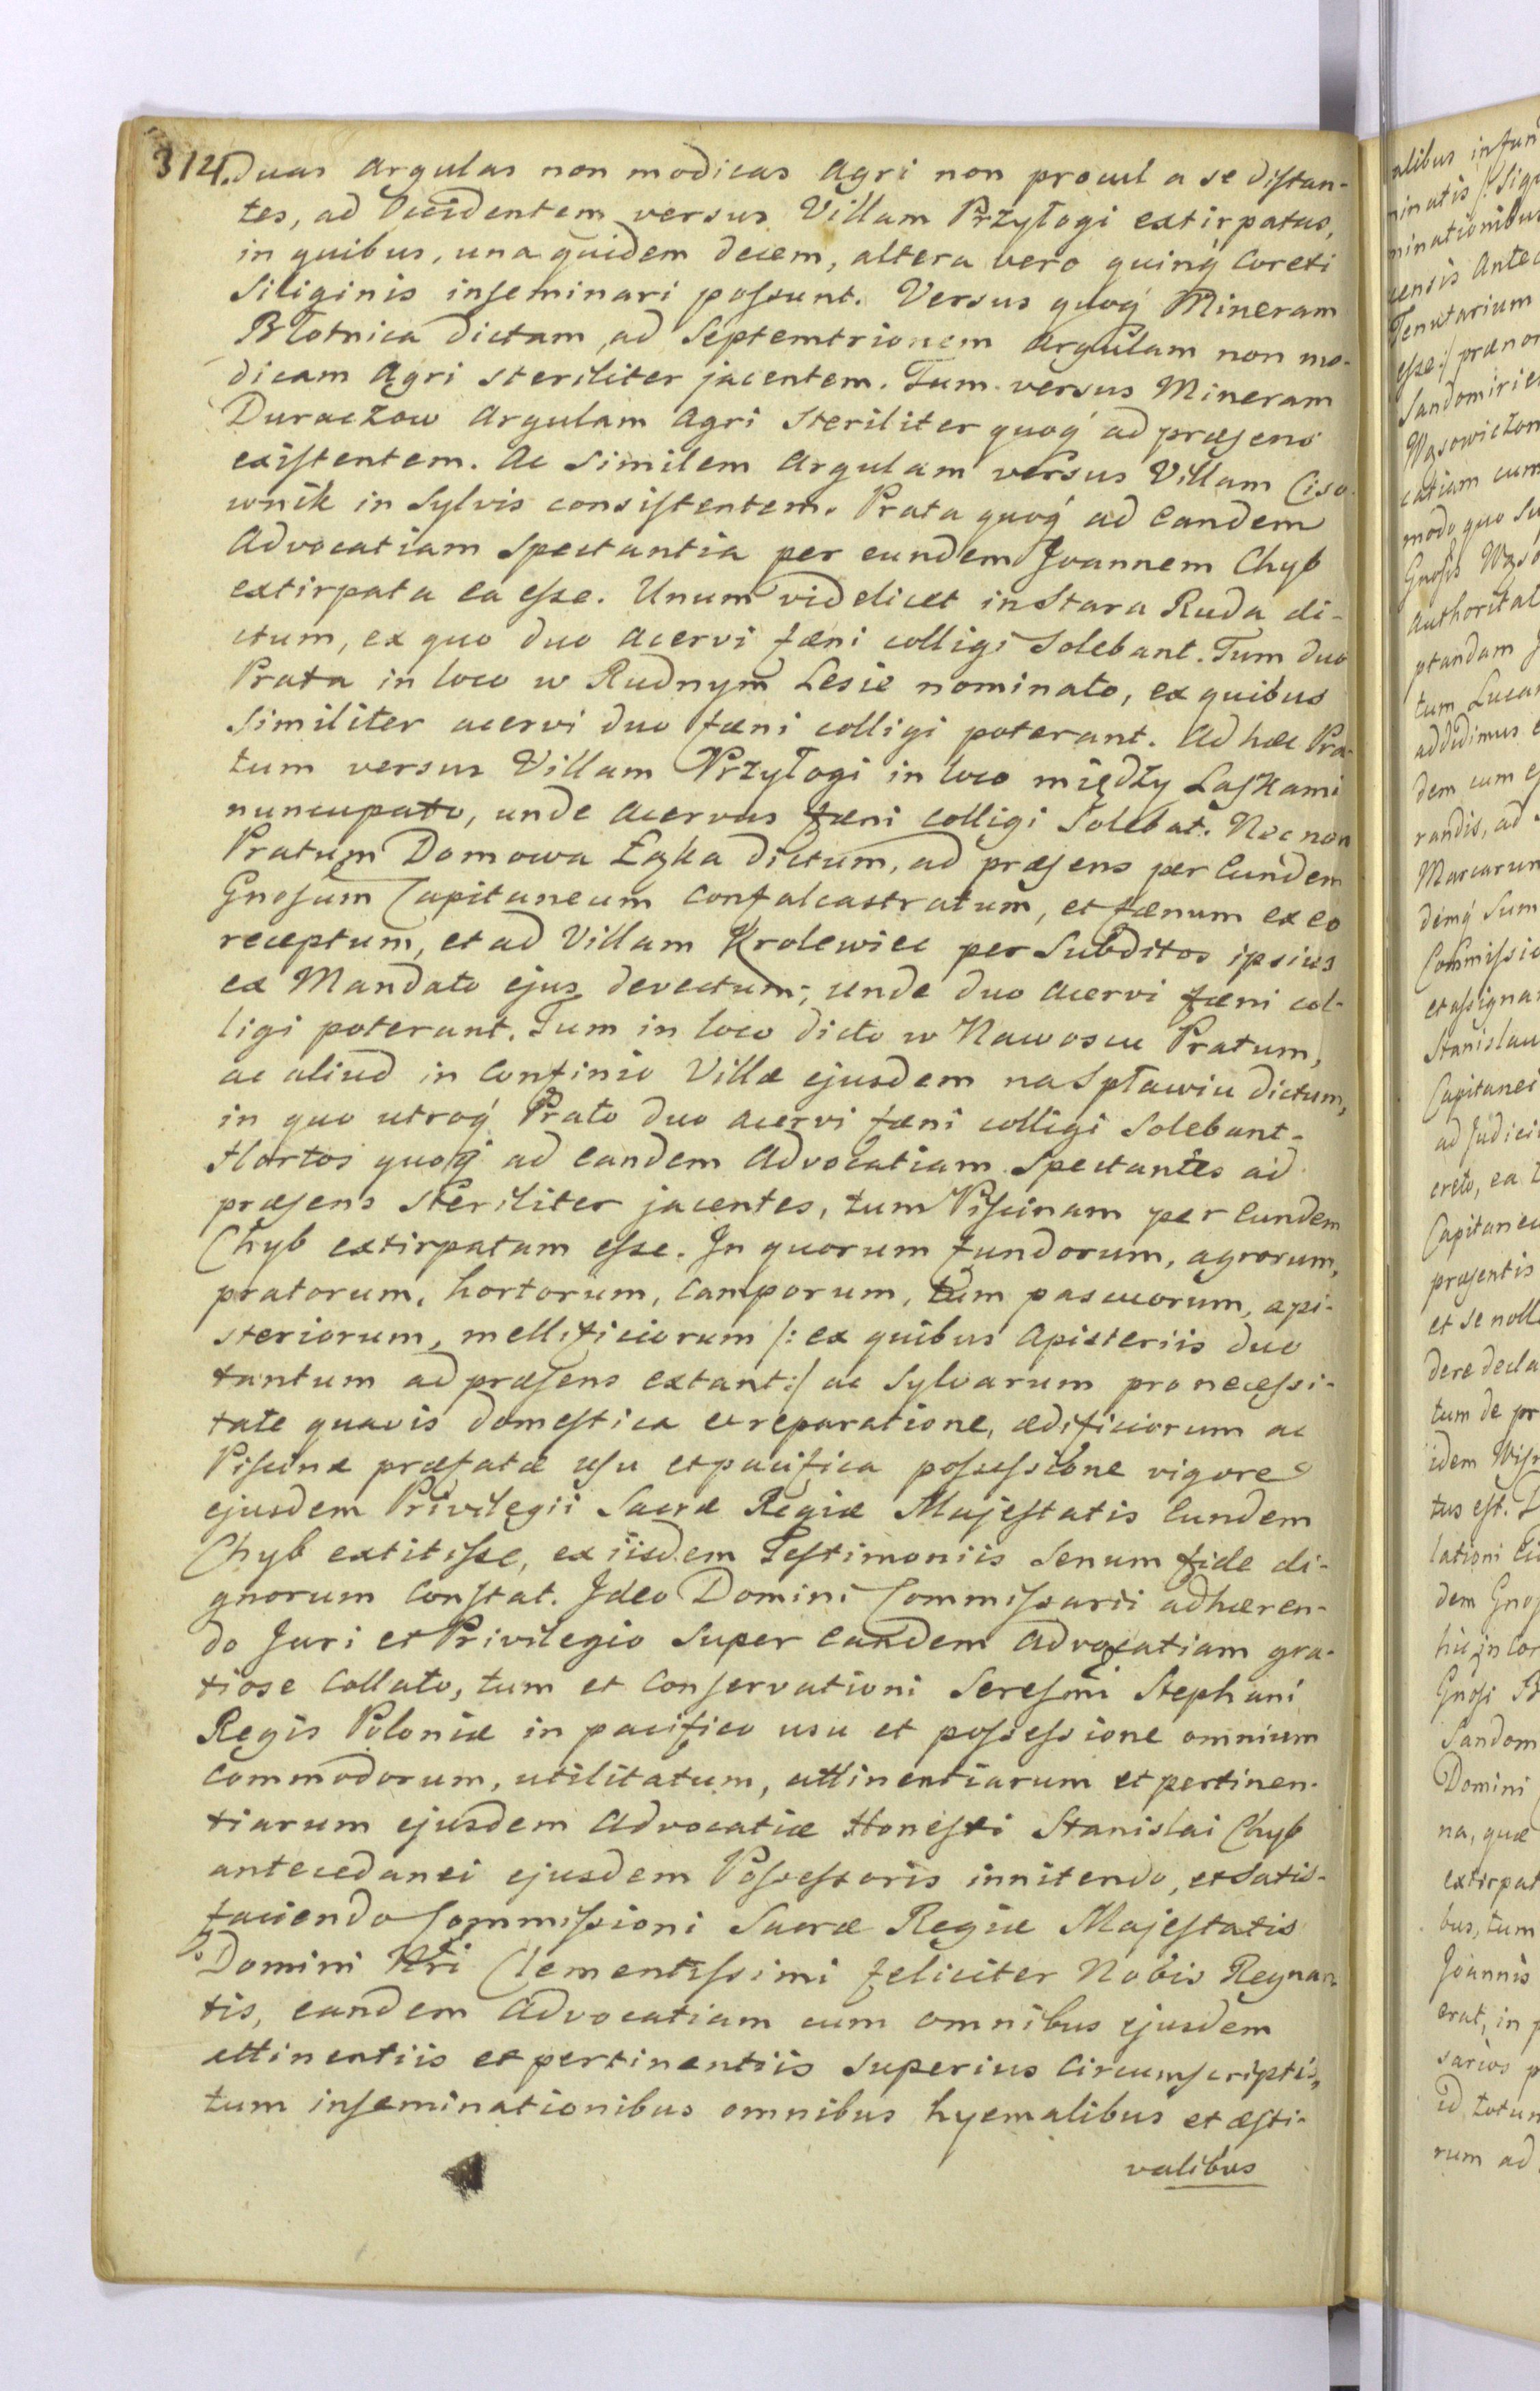 314. Duas Argulas non modicas Agri non procul a se distan-
tes, ad Occidentem versus Villam Przyłogi extirpatas,
in quibus, una quidem decem, altera vero quinq́ Coreti
Siliginis inseminari possunt. Versus quoq́ Mineram
Błotnica dictam, ad Septemtrionem Argulam non mo-
dicam Agri steriliter jacentem. Tum versus Mineram
Duraczow Argulam Agri Steriliter quoq́ ad præsens
existentem. Ac Similem Argulam versus Villam Ciso-
wnik in Sylvis consistentem. Prata quoq́ ad Eandem
Advocatiam Spectantia per eundem Joannem Chyb
extirpata ea esse. Unum videlicet in Stara Ruda di-
ctum, ex quo duo Acervi fæni colligi Solebant. Tum duo
Prata in loco w Rudnym Lesie nominato, ex quibus
Similiter acervi duo fæni colligi poterant. Ad hæc Pra-
tum versus Villam Przyłogi in loco między Laskami
nuncupato, unde Acervus fæni colligi Solebat. Nec non
Pratum Domowa Łąka dictum, ad præsens per Eundem
Gnosum Capitaneum Confalcastratum, et fænum ex eo
receptum, et ad Villam Krolewiec per Subditos ipsius
ex Mandato ejus devectum; unde duo Acervi fæni col-
ligi poterant. Tum in loco dicto w Nawoscu Pratum,
ac aliud in Confinio Villæ ejusdem na Spławiu dictum,
in quo utroq́ Prato duo Acervi fæni colligi Solebant.
Hortos quoq́ ad Eandem Advocatiam Spectantes ad
præsens Steriliter jacentes, tum Piscinam per Eundem
Chyb extirpatam esse. In quorum fundorum, agrorum,
pratorum, hortorum, Camporum, tum pascuorum, api-
steriorum, mellificiorum /: ex quibus Apisteriis duo
tantum ad præsens extant :/ ac Sylvarum pro necessi-
tate quavis domestica et reparatione, ædificiorum ac
Piscinæ præfatæ usu et pacifica possessione vigore
ejusdem Privilegii Sacræ Regiæ Majestatis Eundem
Chyb extitisse, ex iisdem Testimoniis Senum fide di-
gnorum Constat. Ideo Domini Commissarii adhæren-
do Juri et Privilegio Super Eandem Advocatiam gra-
tiose Collato, tum et Conservationi Seresmi Stephani
Regis Poloniæ in pacifico usu et possessione omnium
Commodorum, utilitatum, attinentiarum et pertinen-
tiarum ejusdem Advocatiæ Honesti Stanislai Chyb
antecedanei ejusdem Possessoris innitendo, et Satis-
faciendo Commissioni Sacræ Regiæ Majestatis
Domini Nri Clementissimi feliciter Nobis Regnan
tis, eandem Advocatiam cum omnibus ejusdem
attinentiis et pertinentiis Superius Circumscriptis,
tum inseminationibus omnibus hyemalibus et æsti-
valibus